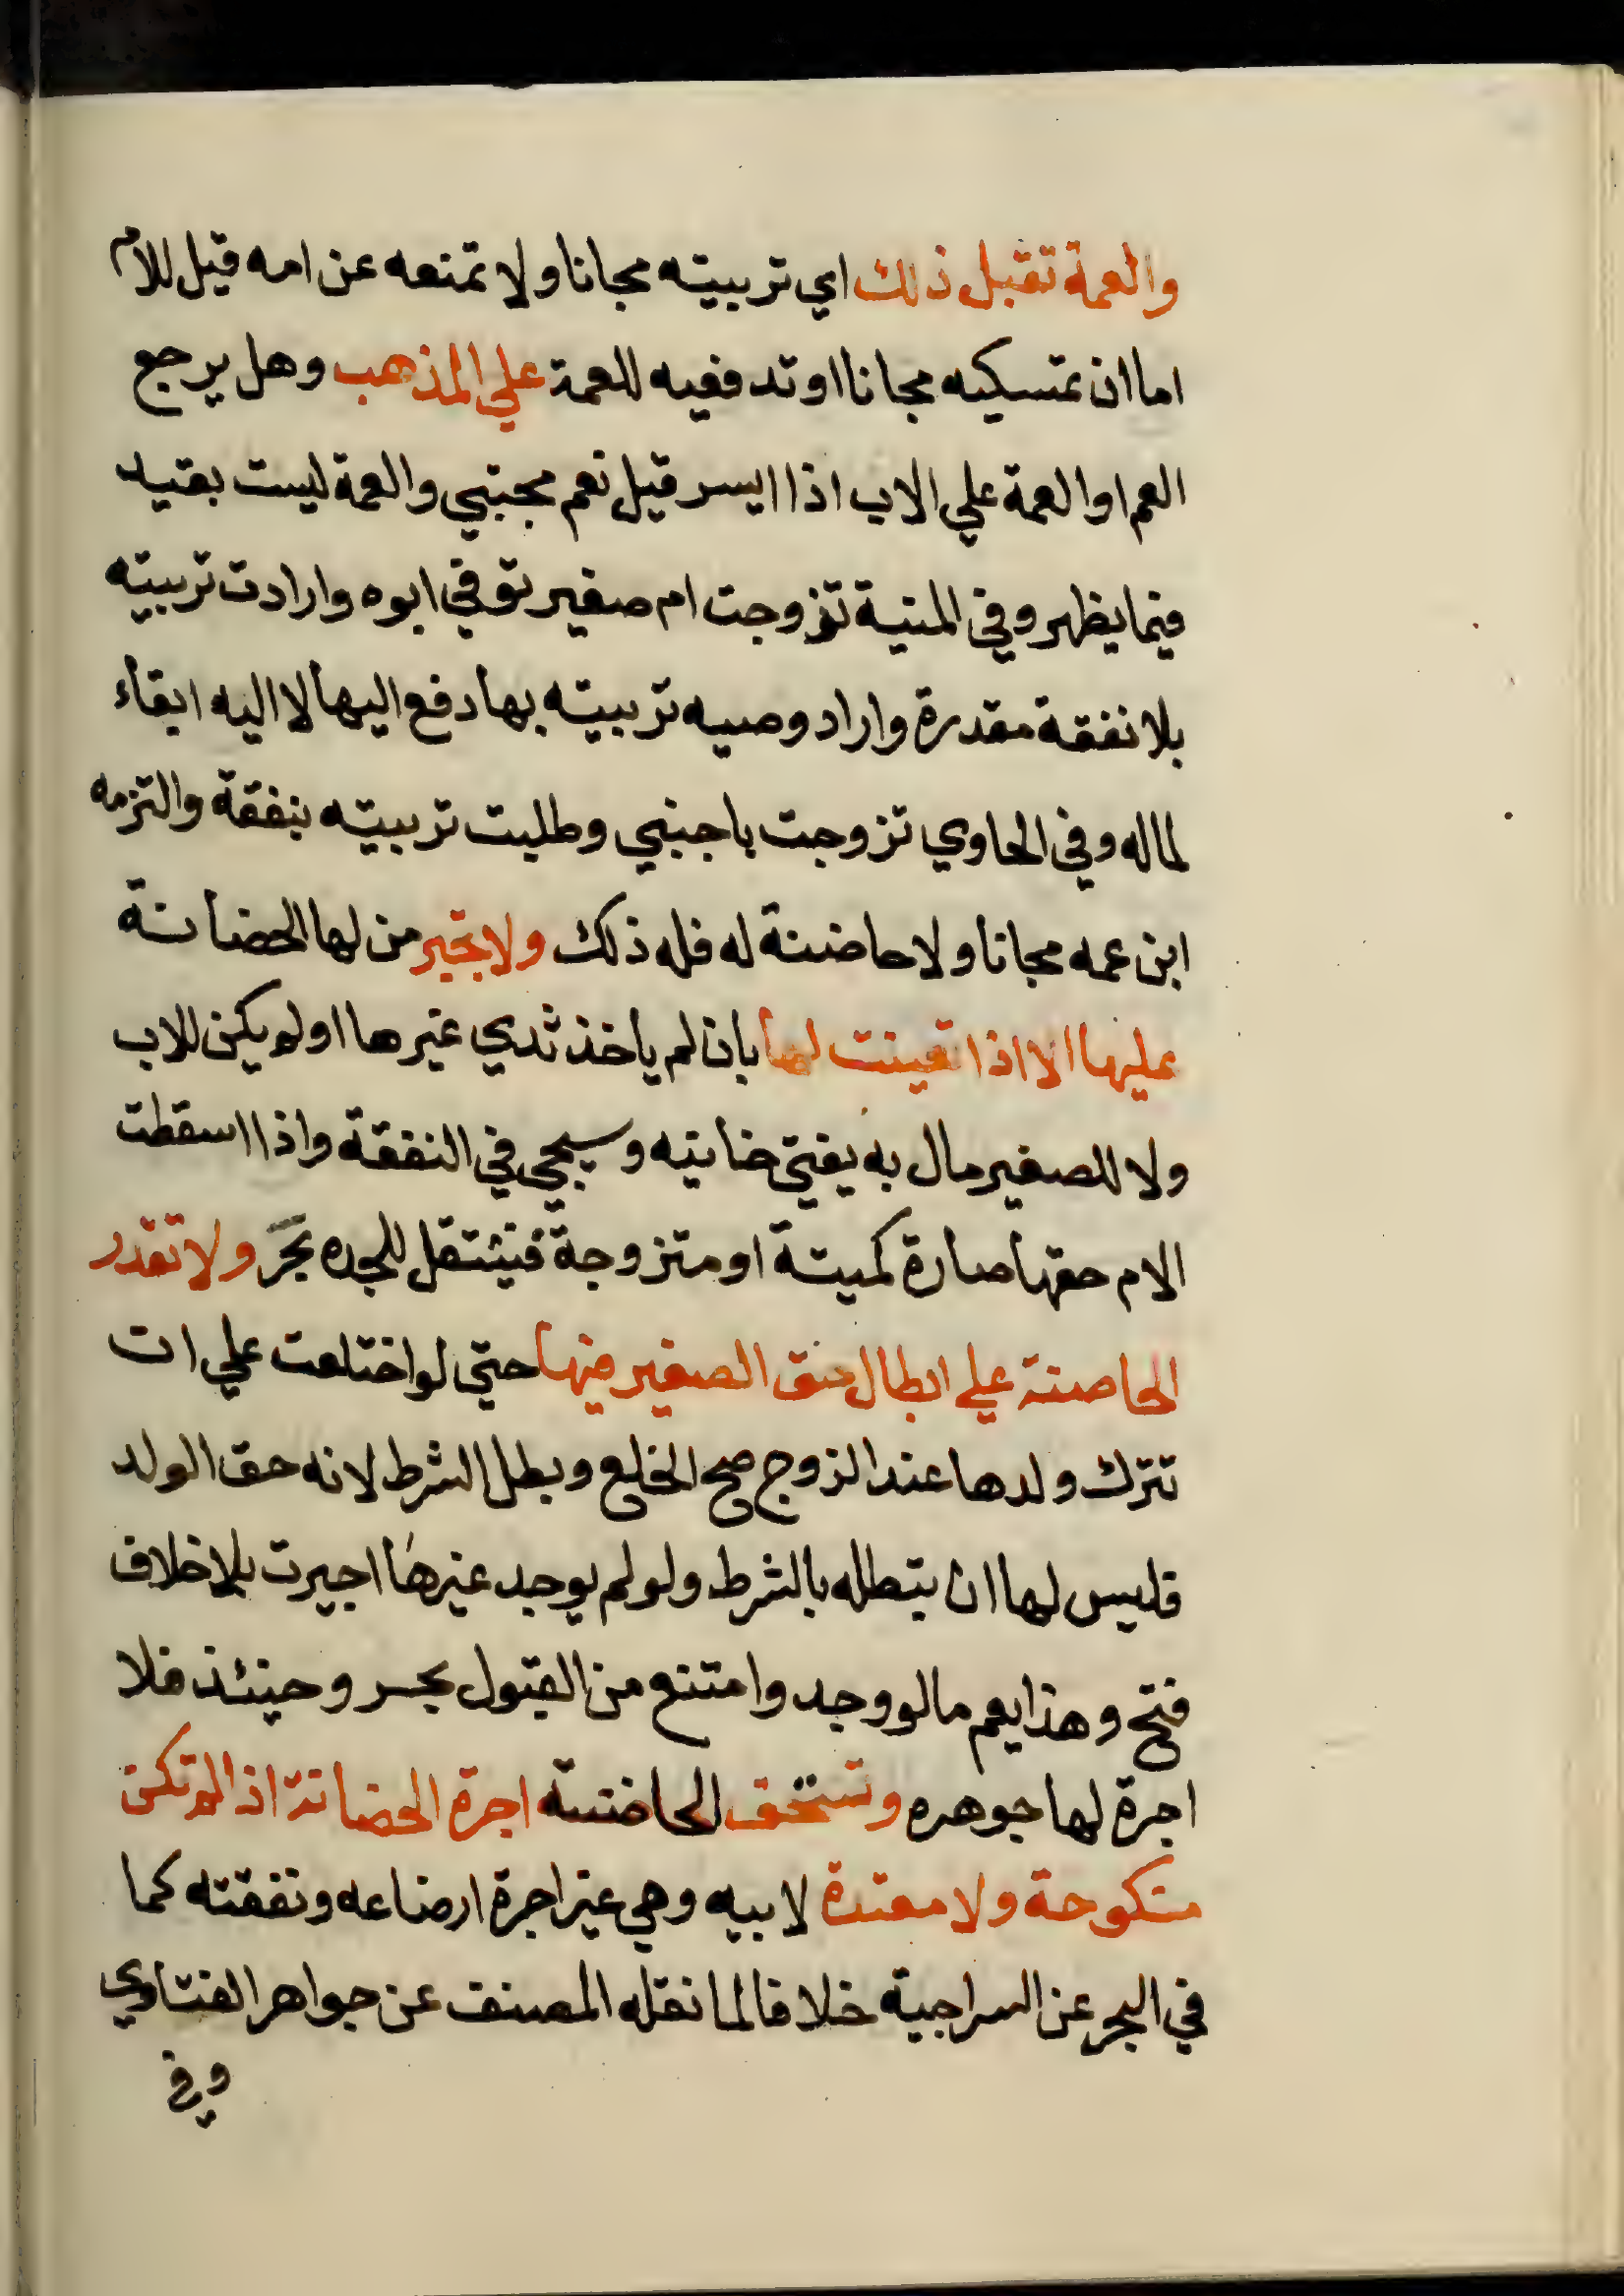 والعمة تقبل ذلك اي تربيته مجانا ولا تمنعه عن امه قيل للام
اما ان تمسكيه مجانا او تدفعيه للعمة علي المذهب وهل يرجع
العم او العمة علي الاب اذا ايسر قيل نعم مجتبي والعمة ليست بقيد
فيما يظهر وفي المنية تزوجت ام صغير توفي ابوه وارادت تربيته
بلا نفقة مقدرة واراد وصيه تربيته بها دفع اليها لا اليه ابقاء
لماله وفي الحاوي تزوجت باجنبي وطلبت تربيته بنفقة والتزمه
ابن عمه مجانا ولا حاضنة له فله ذلك ولا تجبر من لها الحضانة
عليها الا اذا تعينت لها بان لم ياخذ ثدي غيرها او لم يكن للاب
ولا للصغير مال به يفتي خانيه وسيجي في النفقة واذا اسقطت
الام حقها صارة كميتة او متزوجة فتنتقل للجده بحر ولا تقدر
الحاصنة علي ابطال حق الصغير فيها حتي لو اختلعت علي ان
تترك ولدها عند الزوج صح الخلع وبطل الشرط لانه حق الولد
فليس لها ان تبطله بالشرط ولو لم يوجد غيرها اجبرت بلا خلاف
فتح وهذا يعم ما لو وجد وامتنع من القبول بحر وحينئذ فلا
اجرة لها جوهره وتستحق الحاضنة اجرة الحضانة اذا لم تكن
منكوحة ولا معتدة لابيه وهي غير اجرة ارضاعه ونفقته كما
في البحر عن السراجية خلافا لما نقله المصنف عن جواهر الفتاوي
وفي